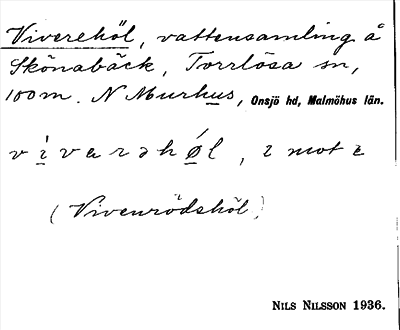 Viverehöl, vattensamling å
Skönabäck, Torrlösa sn,
100 m. N Murhus, Onsjö hd, Malmöhus län.
vivarəhøl, i mot e
(Vivenrödshöl)
NILS NILSSON 1936.